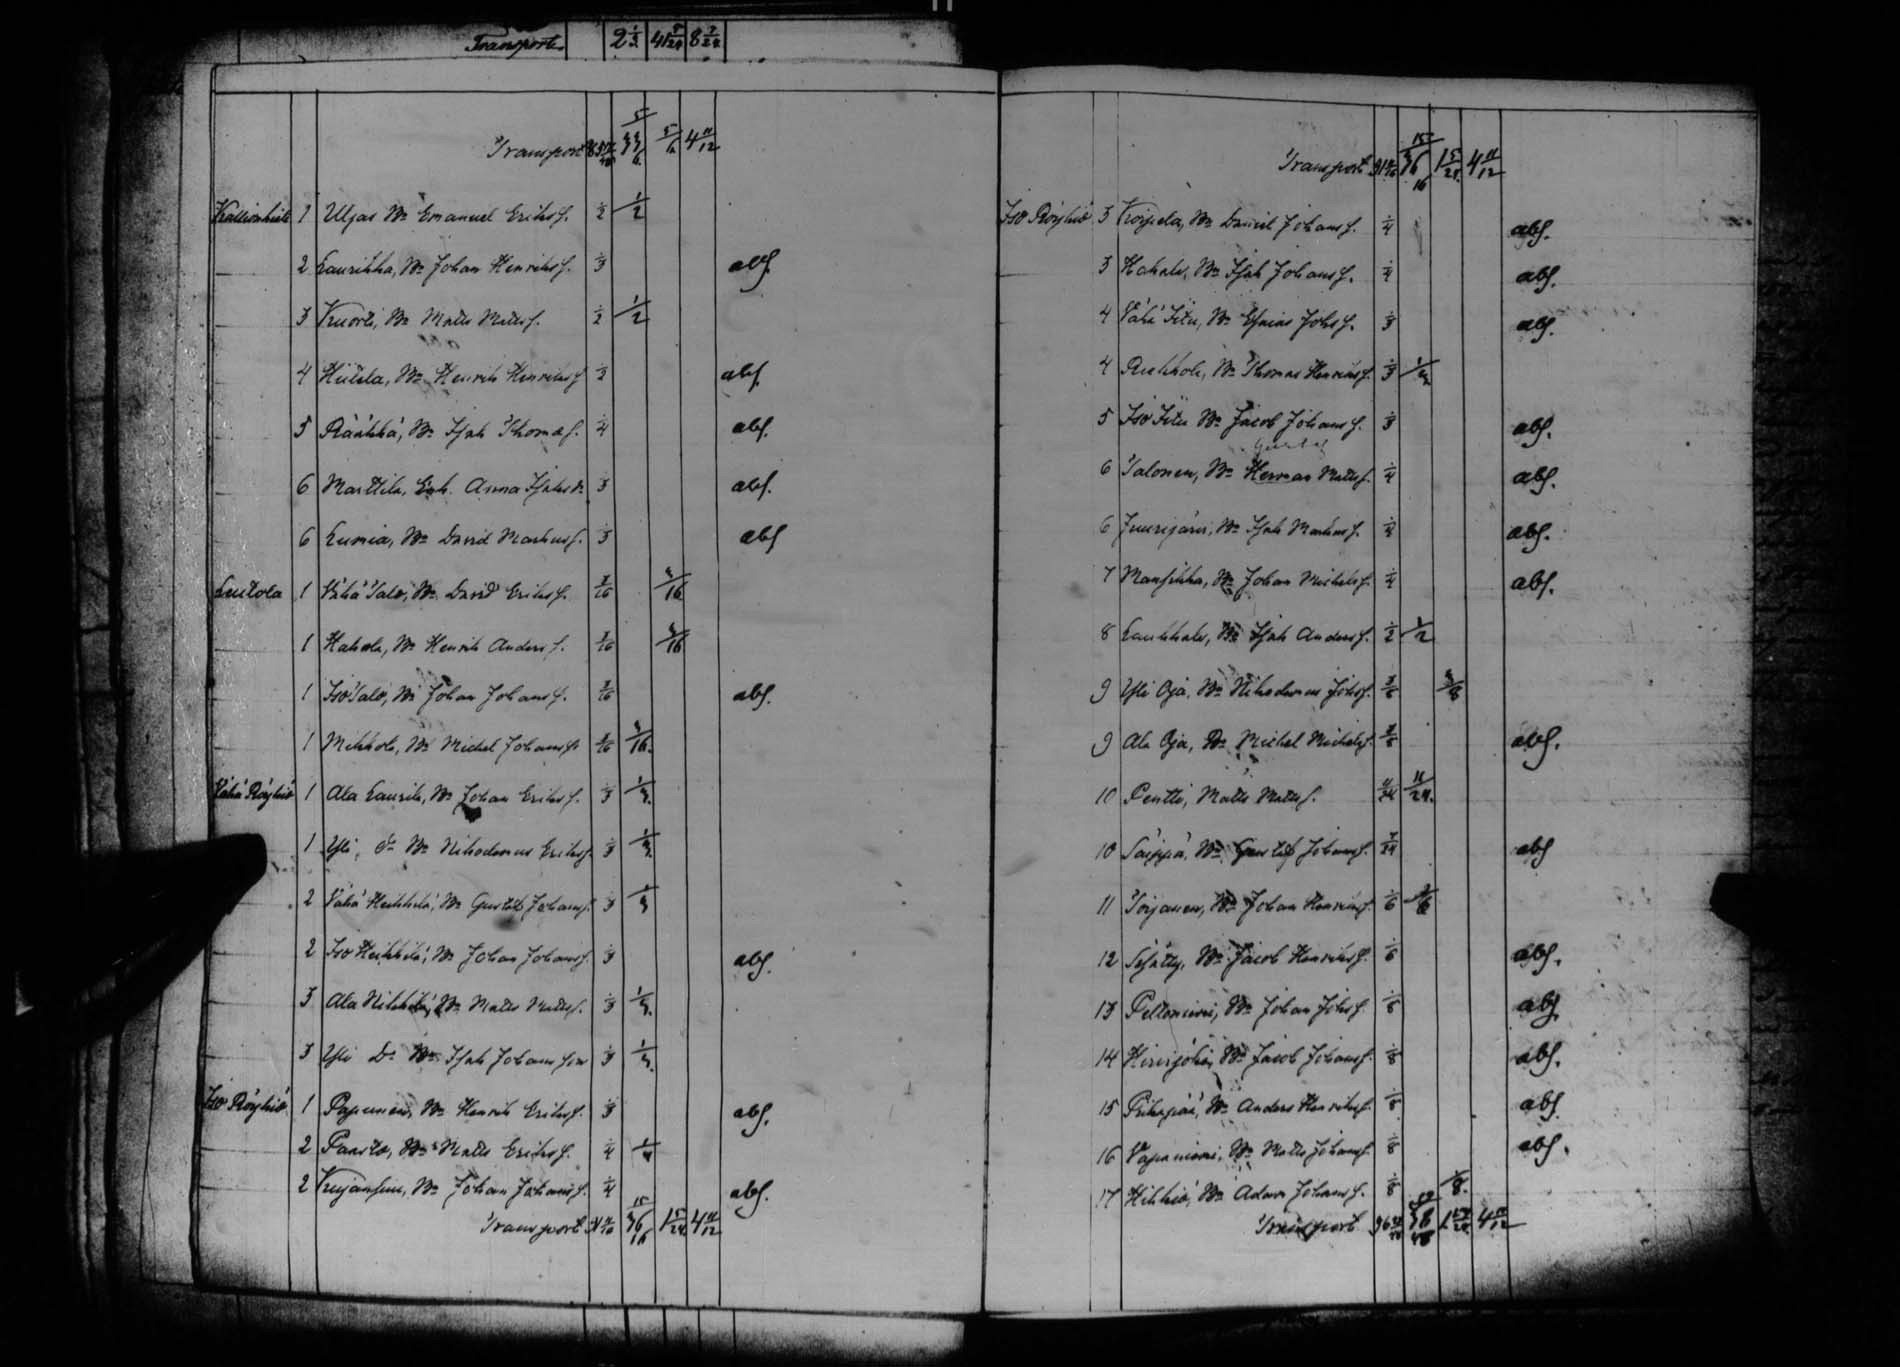 Transport 2 1/3 41 5/24 8 7/24
Transport 5/6 5/12 4 11/12
Kallionkieli 1 Uljas Bn Emanuel Eriksf. 1/2 1/2
2 Laurikka, Bn Johan Henriksf. 1/3 abf.
3 Kuorti, Bn Matts Mattsf. 1/2 1/2
4 Hiitela, Bn Henrik Henriksf 1/2 abf.
5 Räikkä, Bn Isak Thomaf. 1/4 abf.
6 Marttila, Enk. Anna Isaksdr 1/3 abf.
6 Lumia, Bn David Markusf. 1/3 abf
Lentola 1 Vähä Talo, Bn David Eriksf. 3/16 3/16
1 Hakola, Bn Henrik Andersf. 3/16 3/16
1 Iso Talo, Bn Johan Johansf. 3/16 abf.
1 Mikkola, Bn Michel Johansf 3/16 3/16
Vähä Röyhiö 1 Ala Laurila, Bn Johan Eriksf. 1/3 1/3
1 Yli, do Bn Nikodemus Eriksf. 1/3 1/3
2 Vähä Heikkilä, Bn Gustaf Johansf. 1/3 1/3
2 Iso Heikkilä, Bn Johan Johansf. 1/3 abf.
3 Ala Nikkilä, Bn Matts Mattsf. 1/3 1/3
3 Yli Do Bn Isak Johansson 1/3 1/3
Iso Röyhiö 1 Papunen, Bn Henrik Eriksf. 1/3 abf.
2 Paasto, Bn Matts Eriksf. 1/4 1/4
2 Kujansuu, Bn Johan Johansf. 1/4 abf.
Transport 36 15/16 1 5/24 4 11/12
Transport 36 15/16 1 5/24 4 11/12
Iso Röyhiö 3 Koipela, Bn Daniel Johansf. 1/4 abf.
3 Hakala, Bn Isak Johansf. 1/4 abf.
4 Vähä Iitu, Bn Esaias Johsf. 1/3 abf.
4 Ruohhola, Bn Thomas Henriksf. 1/3 1/3
5 Iso Iitu Bn Jacob Johansf. 1/3 abf.
Gustaf
6 Talonen, Bn Herman Mattsf. 1/4 abf.
6 Juurijärvi, Bn Isak Markusf. 1/4 abf.
7 Mansikka, Bn Johan Michelsf. 1/4 abf.
8 Laukkala, Bn Isak Andersf. 1/2 1/2
9 Yli Oja, Bn Nikodemus Johsf. 3/8 3/8
9 Ala Oja, Bn Michel Michelsf. 3/8 abf.
10 Pentti, Matts Mattsf. 11/24 11/24
10 Säippä, Bn Gustaf Johansf. 7/24 abf
11 Torjanen, Bn Johan Henriksf. 1/6 1/6
12 Bn Jacob Henriksf. 1/6 abf.
13 Peltoniemi, Bn Johan Johsf. 1/8 abf
14 Hirvijoki, Bn Jacob Johansf. 1/8 abf.
15 Pihapää, Bn Anders Henriksf. 1/8 abf
16 Vapaniemi, Bn Matts Johansf. 1/8 abf.
17 Hikkiö, Bn Adam Johansf. 1/8 1/8
Transport 4 11/12